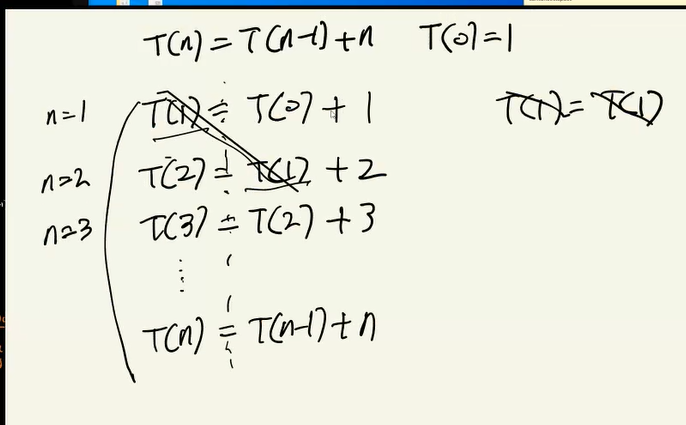 T(n) = T(n-1) + n T(0) = 1
n=1 T(1) = T(0) + 1 T(1) = T(1)
n=2 T(2) = T(1) + 2
n=3 T(3) = T(2) + 3
T(n) = T(n-1) + n